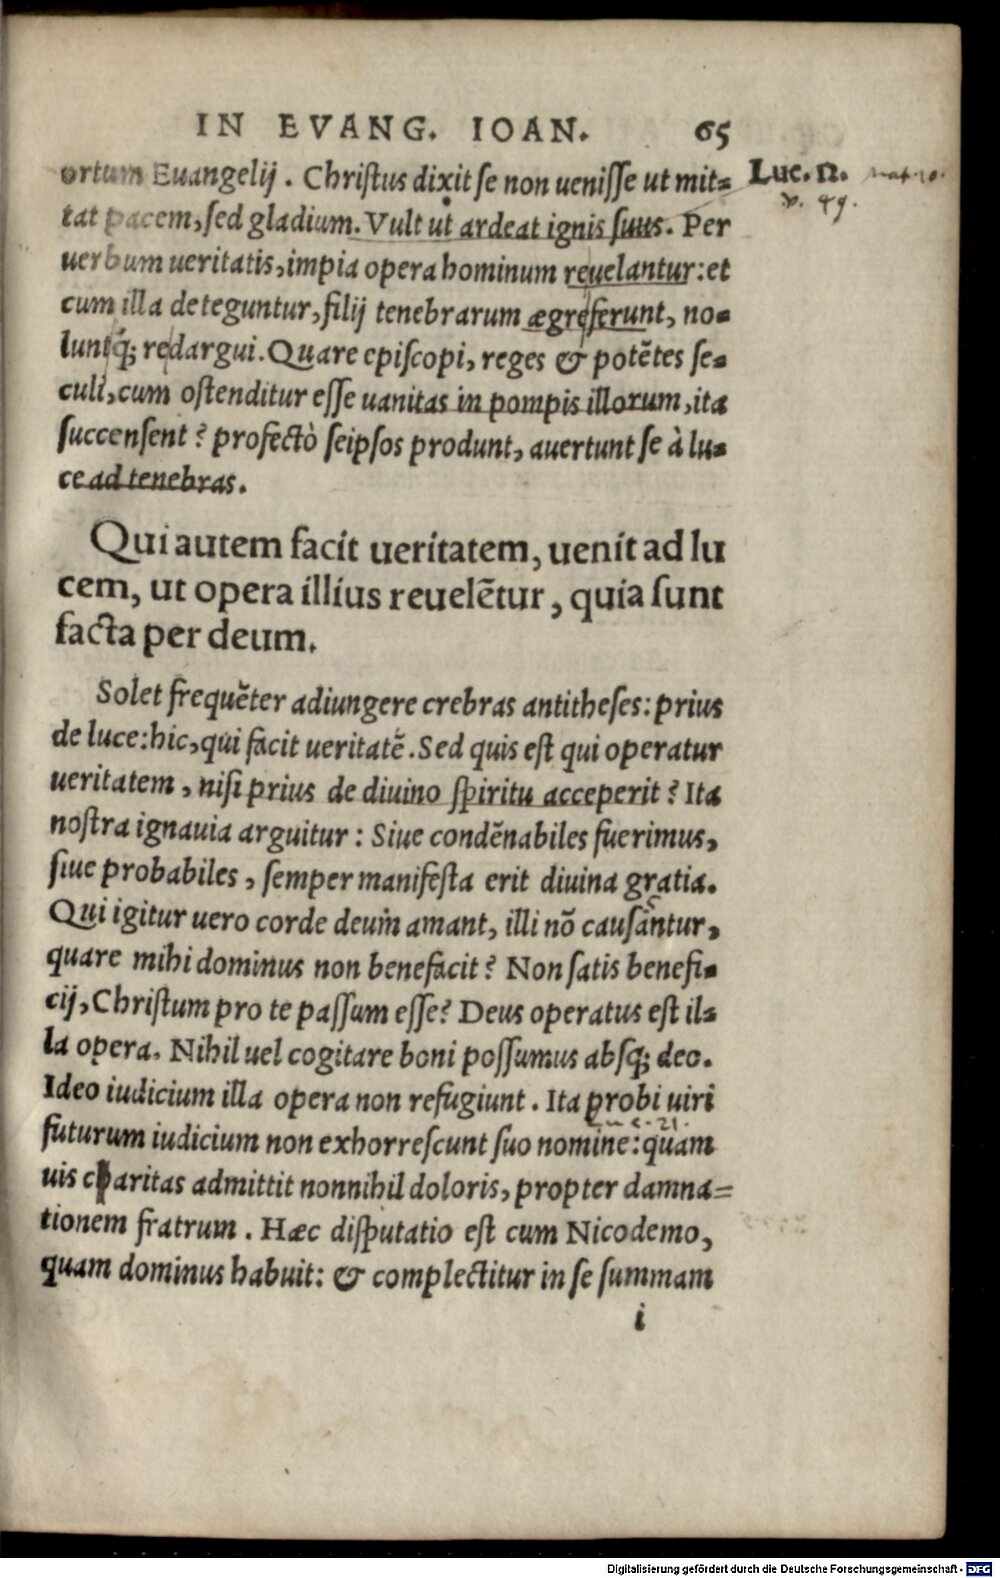 IN EVANG. IOAN. 65
ortum Euangelij. Christus dixit se non uenisse ut mit= Luc. 12. mat. 10.
tat pacem, sed gladium. Vult ut ardeat ignis suus. Per v. 49.
uerbum ueritatis, impia opera hominum reuelantur: et
cum illa deteguntur, filij tenebrarum ægre ferunt, no=
luntq; redargui. Quare episcopi, reges & potētes se=
culi, cum ostenditur esse uanitas in pompis illorum, ita
succensent? profectò seipsos produnt, auertunt se à lu=
ce ad tenebras.
Qui autem facit ueritatem, uenit ad lu
cem, ut opera illius reuelētur, quia sunt
facta per deum.
Solet frequēter adiungere crebras antitheses: prius
de luce: hic, qui facit ueritatē. Sed quis est qui operatur
ueritatem, nisi prius de diuino spiritu acceperit? Ita
nostra ignauia arguitur: Siue condēnabiles fuerimus,
siue probabiles, semper manifesta erit diuina gratia.
Qui igitur uero corde deum amant, illi nō causantur,
quare mihi dominus non benefacit? Non satis benefi=
cij, Christum pro te passum esse? Deus operatus est il=
la opera. Nihil uel cogitare boni possumus absq; deo.
Ideo iudicium illa opera non refugiunt. Ita probi uiri
luc. 21.
futurum iudicium non exhorrescunt suo nomine: quam
uis charitas admittit nonnihil doloris, propter damna=
tionem fratrum. Hæc disputatio est cum Nicodemo,
quam dominus habuit: & complectitur in se summam
i
Digitalisierung gefördert durch die Deutsche Forschungsgemeinschaft - DFG